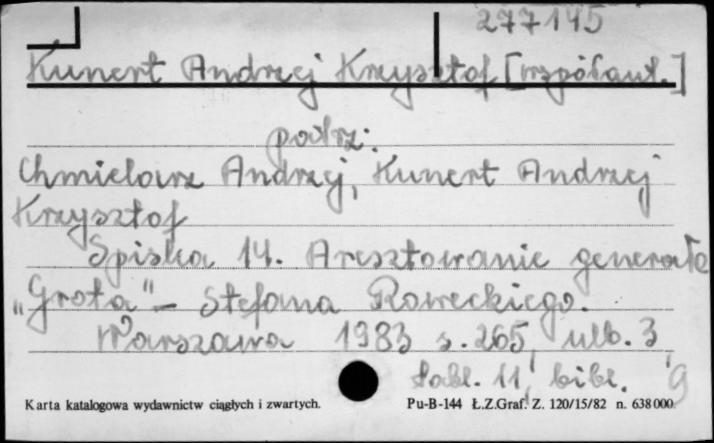 277145
Kunert Andrzej Krzysztof [współaut.]
patrz:
Chmielarz Andrzej, Kunert Andrzej
Krzysztof
Spiska 14. Aresztowanie generała
„Grota" – Stefana Roweckiego.
Warszawa 1983 s. 265, nlb. 3,
tabl. 11, bibl. 9
Karta katalogowa wydawnictw ciągłych i zwartych. Pu-B-144 Ł.Z.Graf. Z. 120/15/82 n. 638000